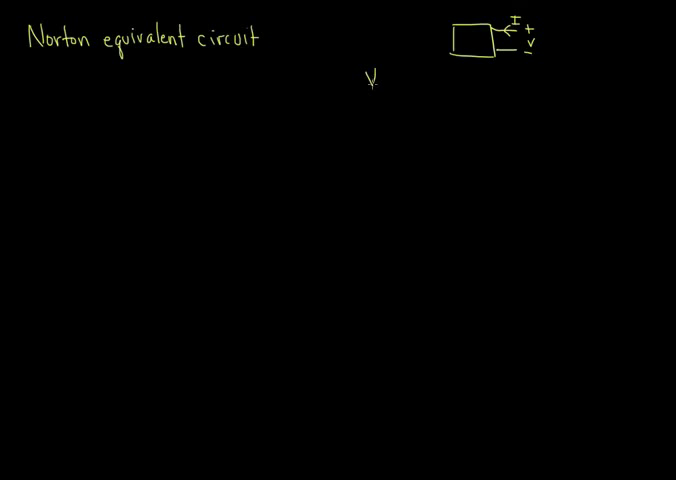 Norton equivalent circuit
I
+
V
-
V